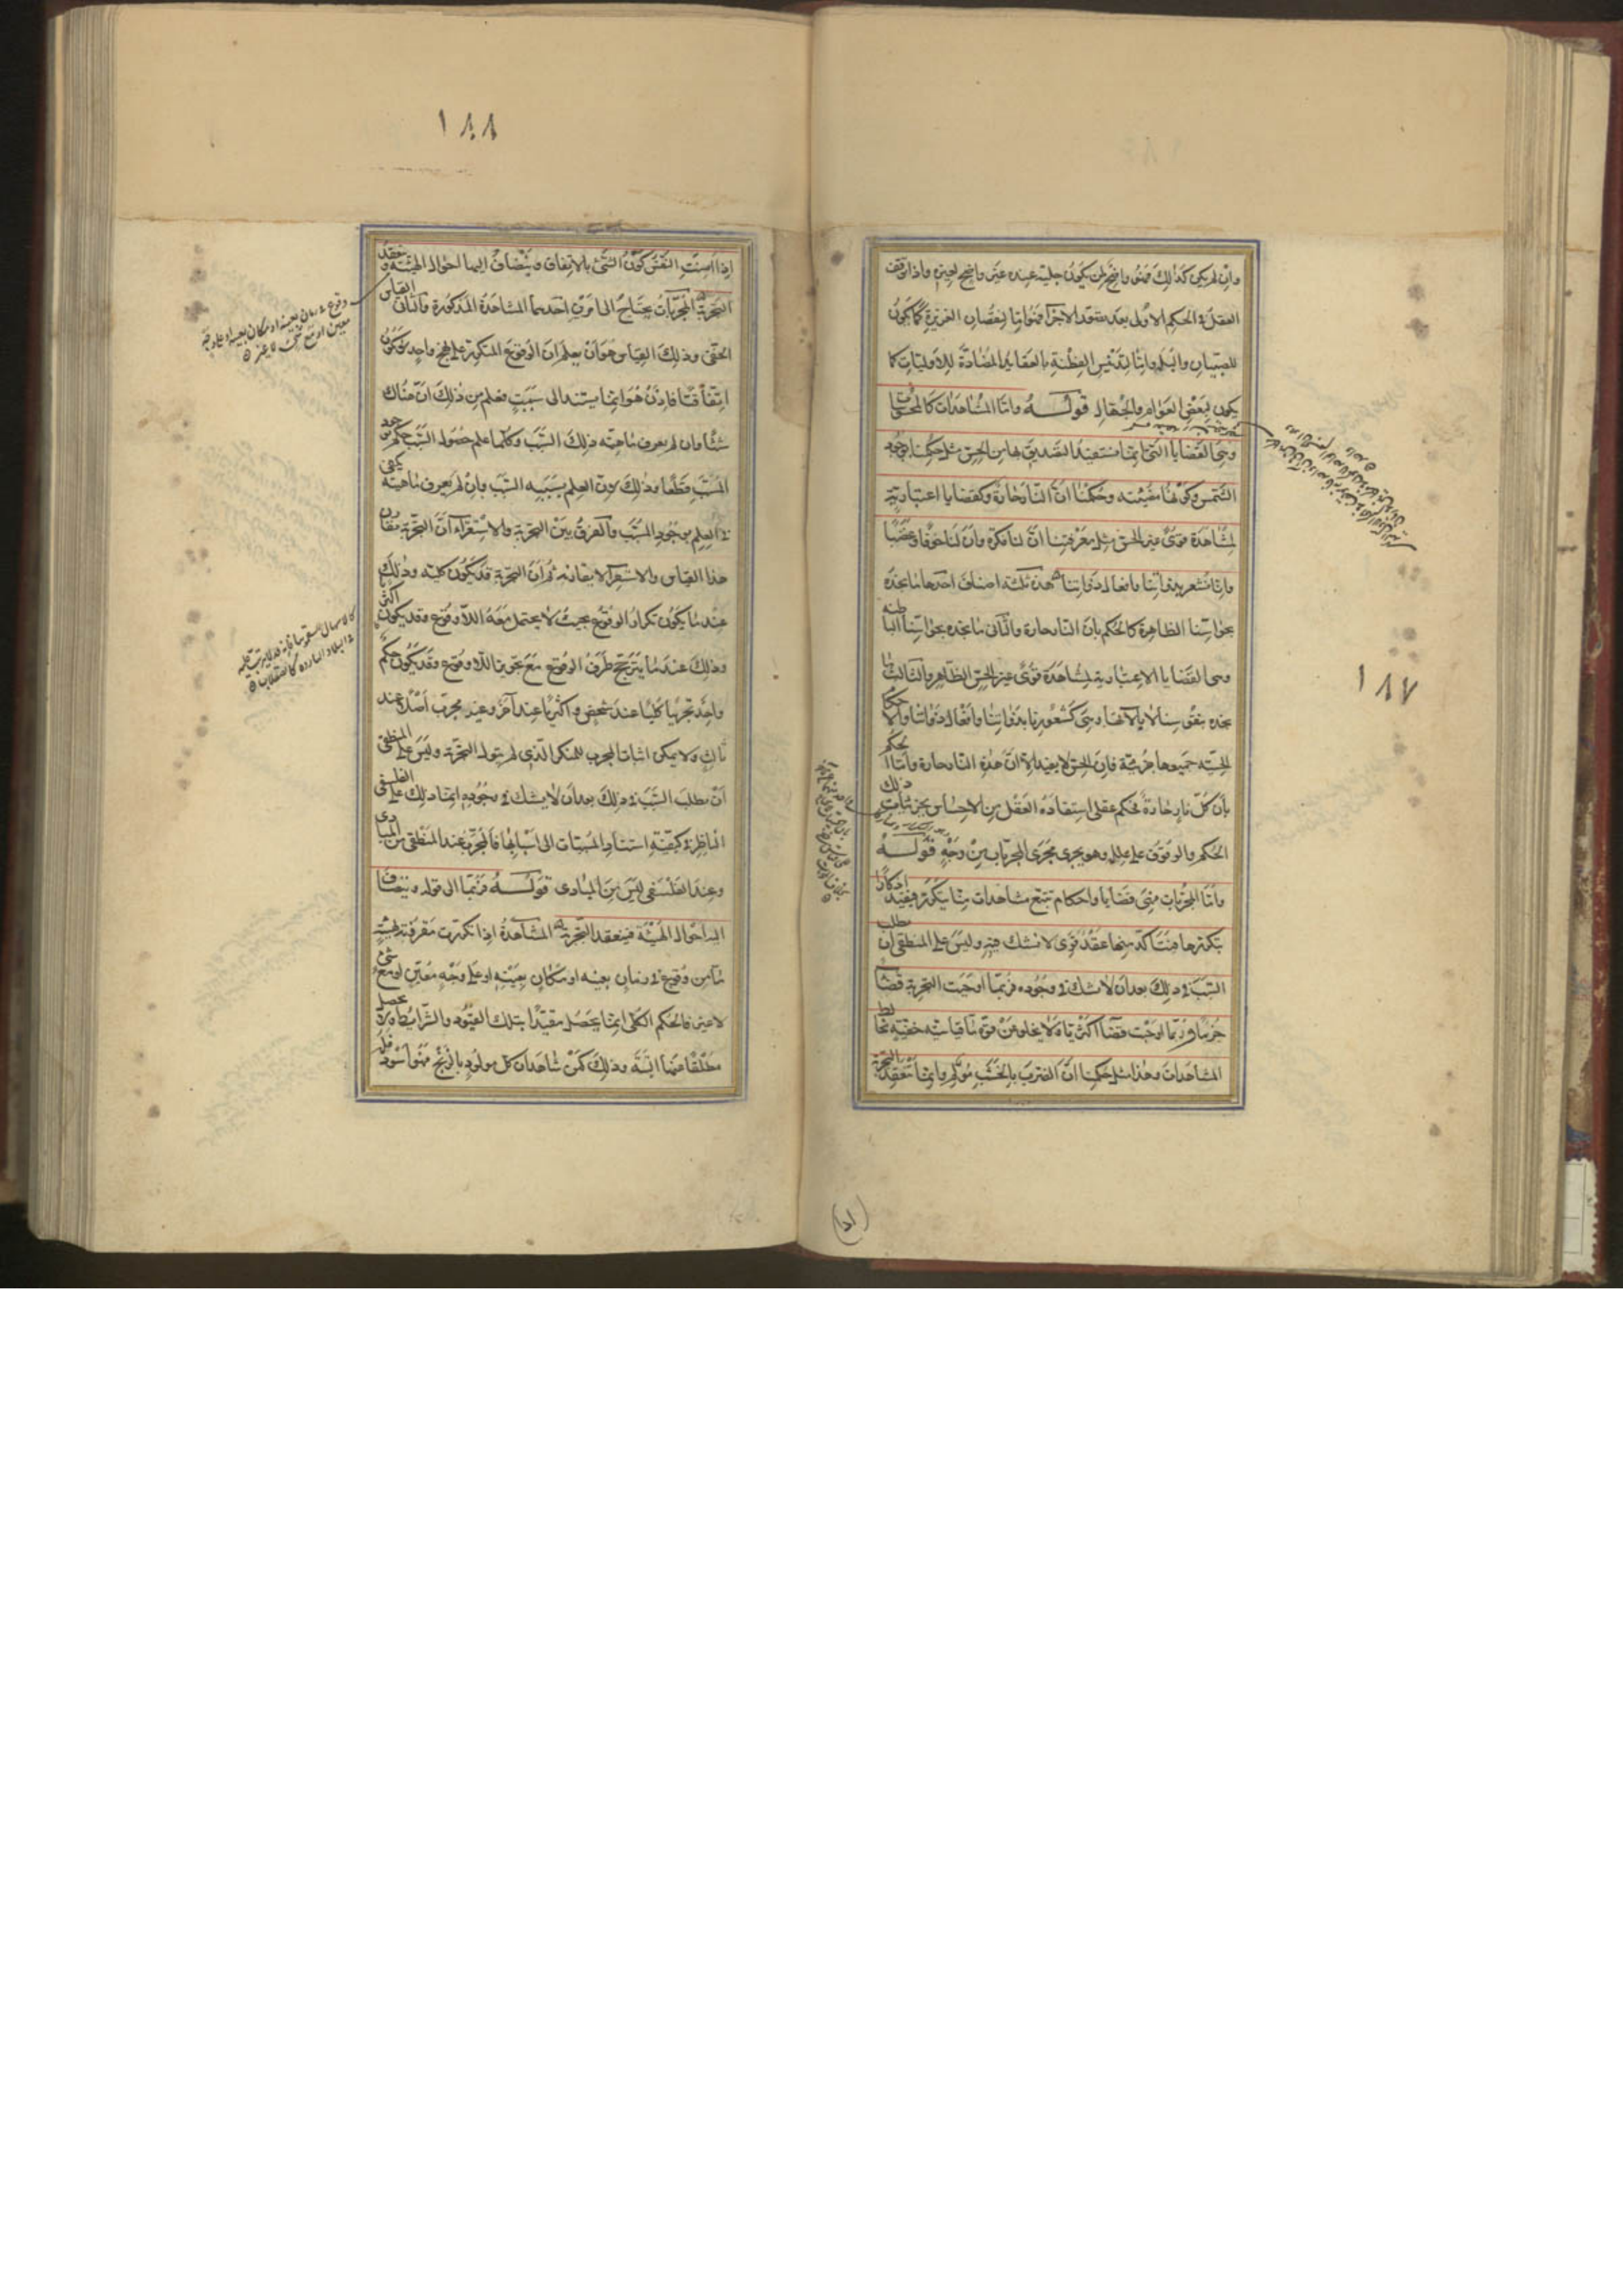 ١٨٧
وان لم يكن كذلك فهو واضح لمن يكون جلية عنده غير واضح لغيره واذا توقف
العقل فى الحكم الاولى بعد تصور الاجزاء فهو اما لنقصان الغريزة كما يكون
للصبيان والبله واما لتدنيس الفطنة بالعقايد المضادة للاوليات كما
يكون لبعض العوام والجهال قوله واما المشاهدات كالمحسوسات
وهى القضايا التى انما نستفيد التصديق بها من الحس مثل حكمنا بوجود
الشمس وكونها مضيئة وحكمنا ان النار حارة وكقضايا اعتبارية
لمشاهدة قوى غير الحس مثل معرفتنا ان لنا فكرة وان لنا خوفا وغضبا
وانا نشعر بذواتنا وافعال ذواتنا هذه ثلثة اصناف احدها ما نجده
بحواسنا الظاهرة كالحكم بان النار حارة والثانى ما نجده بحواسنا الباطنة
وهى القضايا الاعتبارية لمشاهدة قوى غير الحس الظاهر والثالث ما
نجده بنفوسنا لا بآلاتها وهى كشعورنا بذواتنا وافعال ذواتنا والاحكام
الحسية جميعها جزئية فان الحس لا يفيد الا ان هذه النار حارة واما الحكم
بان كل نار حارة فحكم عقلى استفاده العقل من الاحساس بجزئيات ذلك
الحكم والوقوف على علله وهو يجرى مجرى المجربات من وجه قوله
واما المجربات فهى قضايا واحكام تتبع مشاهدات منا يتكرر فيفيد اذكارا
بتكررها فيتاكد منها عقد قوى لا نشك فيه وليس على المنطقى ان يطلب
السبب فى ذلك بعد ان لا نشك فى وجوده فربما اوجبت التجربة قضاء
جزما وربما اوجبت قضاء اكثريا ولا يخلو من قوة ما قياسية خفية تخالط
المشاهدات وهذا مثل حكمنا ان الضرب بالخشب مولم وانما تنعقد التجربة
١٨٨
اذا امنت النفس كون الشئ بالاتفاق وينضاف اليها احوال الهيئة فتنعقد
التجربة المجربات يحتاج الى امرين احدهما المشاهدة المذكورة والثانى القياس
الخفى وذلك القياس هو ان يعلم ان الوقوع المتكرر على نهج واحد لا يكون
اتفاقيا فاذن هو انما يستند الى سبب فيعلم من ذلك ان هناك
شيئا وان لم يعرف ماهية ذلك السبب وكلما علم حصول السبب حكم بوجود
المسبب قطعا وذلك لان العلم بسببية السبب وان لم يعرف ماهيته يكفى
فى العلم بوجود المسبب والفرق بين التجربة والاستقراء ان التجربة تقارن
هذا القياس والاستقراء لا يقارنه ثم ان التجربة قد تكون كلية وذلك
عند ما يكون تكرار الوقوع بحيث لا يحتمل معه اللا وقوع وقد يكون اكثرية
وذلك عند ما يترجح طرف الوقوع مع تجويز اللا وقوع وقد يكون حكم
واحد تجربيا كليا عند شخص واكثريا عند آخر وغير مجرب اصلا عند
ثالث ولا يمكن اثبات المجرب للمنكر الذى لم يتول التجربة وليس على المنطقى
ان يطلب السبب فى ذلك بعد ان لا يشك فى وجوده انما ذلك على الفلسفى
الناظر فى كيفية استناد المسببات الى اسبابها فالمجرب عند المنطقى من المبادى
وعند الفلسفى ليس من المبادى قوله فربما الى قوله وينضاف
اليه احوال الهيئة فينعقد التجربة المشاهدة اذا تكررت مقرونة بهيئة
ما من وقوع فى زمان بعينه او مكان بعينه او على وجه معين او مع شئ
لا غير فالحكم الكلى انما يحصل مقيدا بتلك القيود والشرايط ولا يحصل
مطلقا عنها البتة وذلك كمن شاهد ان كل مولود بالزنج فهو اسود فله
وقوع فى زمان بعينه او مكان بعينه او على وجه
معين او مع شئ لا غير